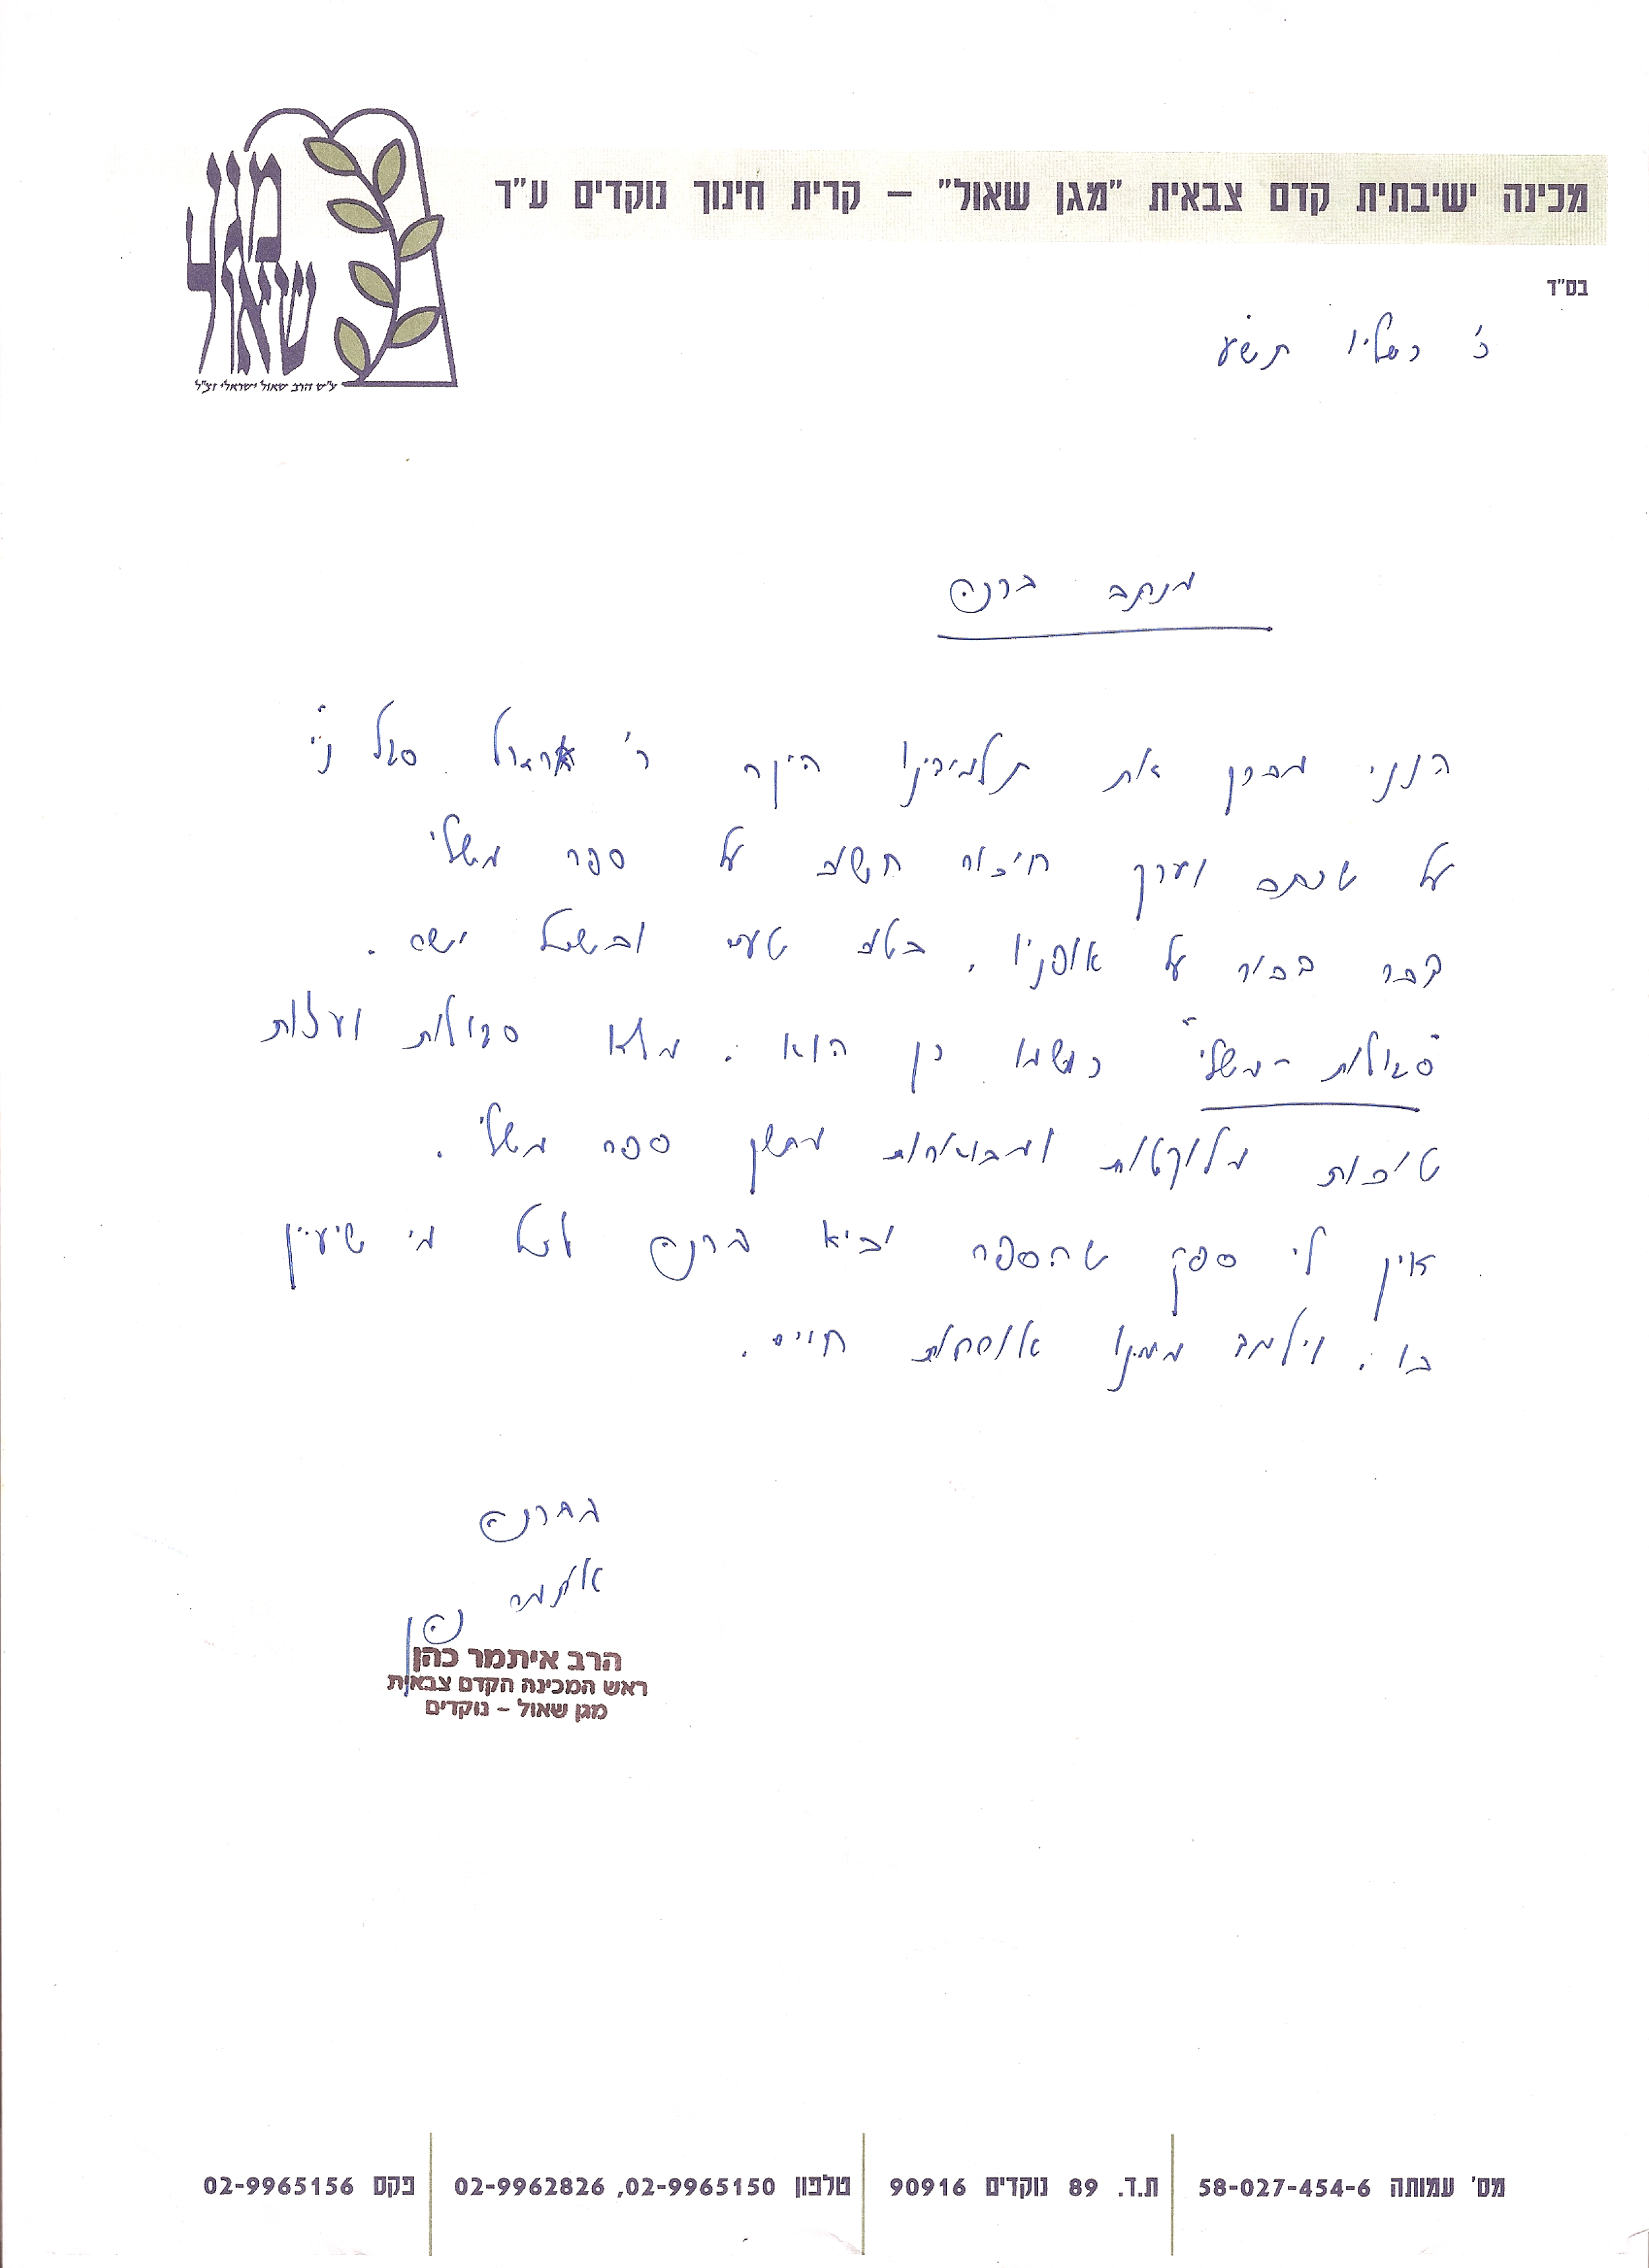 מגן שאול
ע"ש הרב שאול ישראלי זצ"ל
מכינה ישיבתית קדם צבאית "מגן שאול" – קרית חינוך נוקדים ע"ר
בס"ד
כ' כסליו תשע
מכתב ברכה
הנני מברך את תלמידנו היקר ר' סגל נ"י
על שכתב וערך חיבור חשוב על ספר משלי
דבר דבור על אופניו, בטוב טעם ובשכל ישר.
"סגולות-משלי" כשמו כן הוא, מלא סגולות ועצות
טובות מלוקטות ומבוארות מתוך ספר משלי.
אין לי ספק שהספר יביא ברכה לכל מי שיעיין
בו, וילמד ממנו אורחות חיים.
בברכה
איתמר כהן
הרב איתמר כהן
ראש המכינה הקדם צבאית
מגן שאול – נוקדים
מס' עמותה 58-027-454-6 ת.ד. 89 נוקדים 90916 טלפון 02-9965150, 02-9962826 פקס 02-9965156